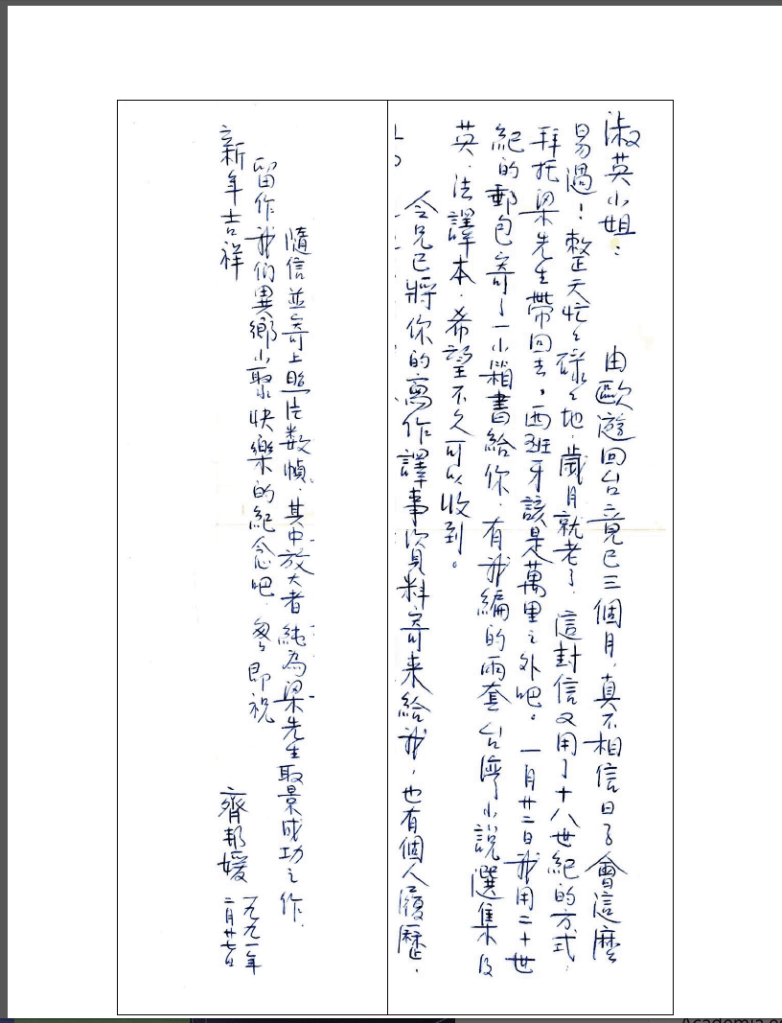 淑英小姐：
由歐遊回台竟已三個月，真不相信日子會這麼
易過！整天忙忙碌碌地，歲月就老了。這封信又用了十八世紀的方式，
拜托梁先生帶回去，西班牙該是萬里之外吧。一月廿二日我用二十世
紀的郵包寄了一小箱書給你，有我編的兩套台灣小說選集及
英、法譯本，希望不久可以收到。
令兄已將你的寫作譯事資料寄來給我，也有個人履歷，
隨信並寄上照片数幀，其中放大者純為梁先生取景成功之作，
留作我们異鄉小聚快樂的紀念吧，匆匆即祝
新年吉祥
齊邦媛
一九九一年
二月廿七日
Academia.e